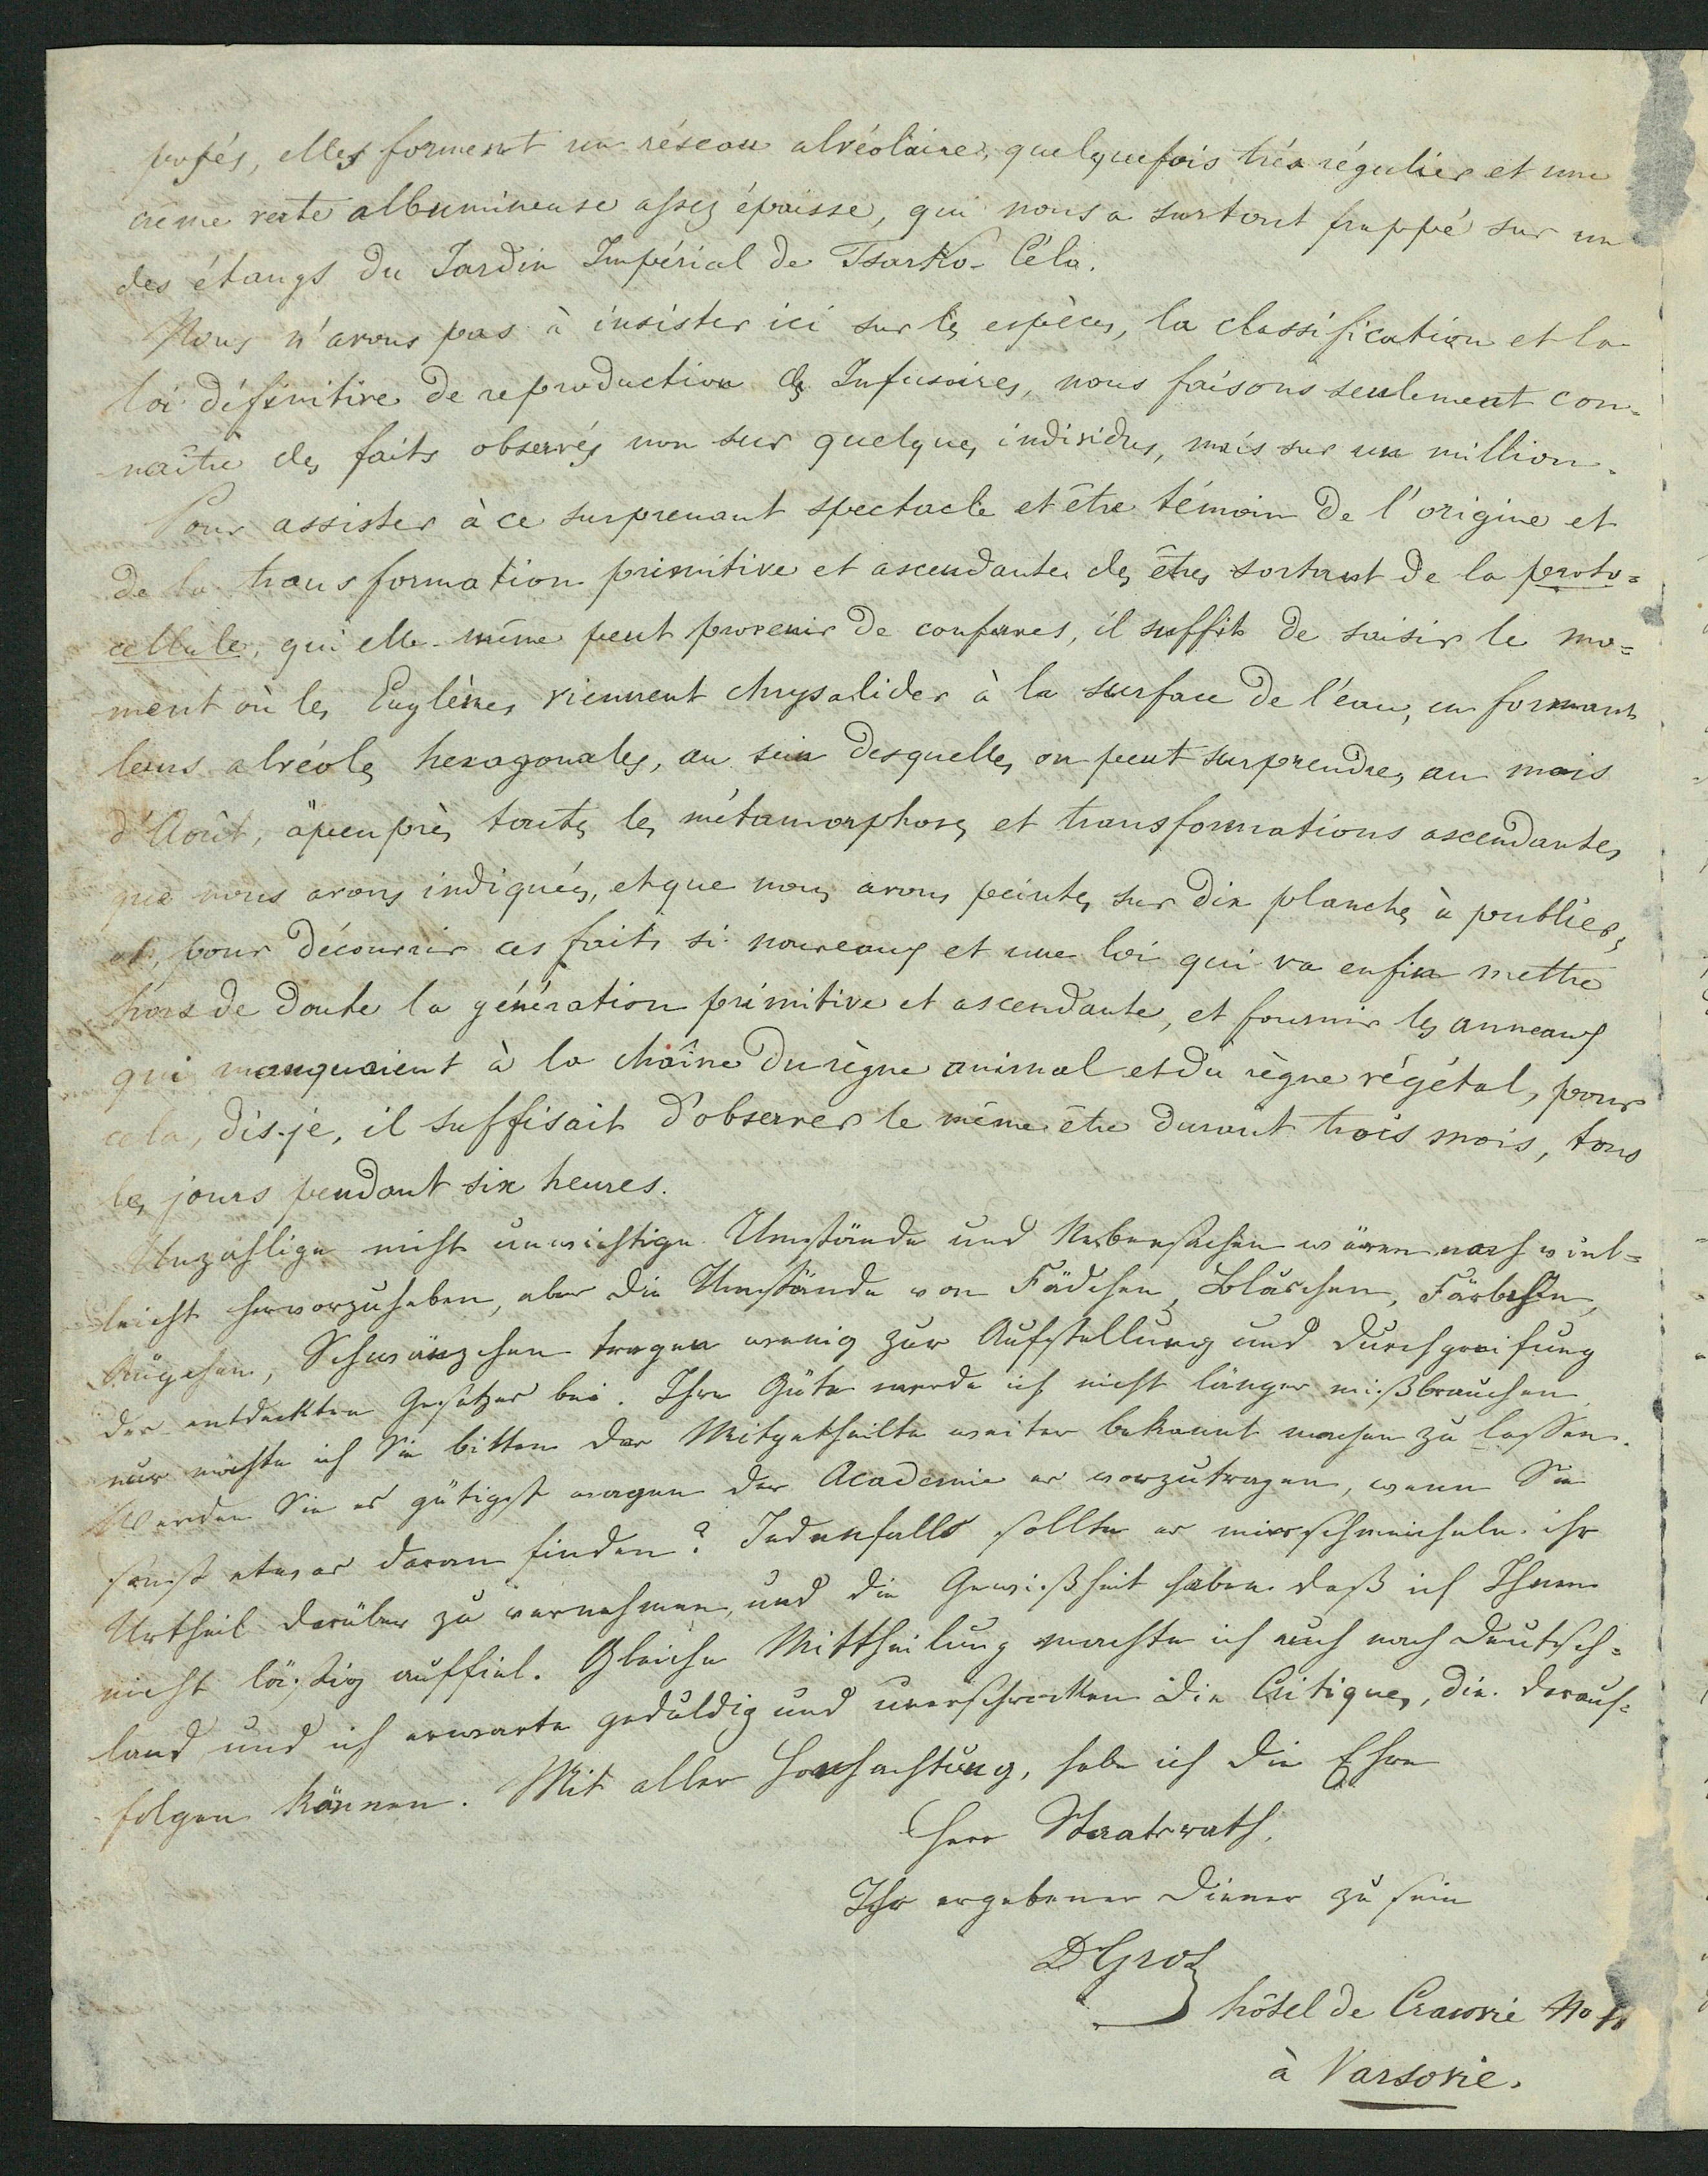 posés, elles forment un réseau alvéolaire, quelquefois très régulier et une
crême verte albumineuse assez épaisse, qui nous a surtout frappé sur un
des étangs du Jardin Impérial de Tsarko-Célo.
Nous n'avons pas à insister ici sur les espèces, la classification et la
loi définitive de reproduction des Infusoires, nous faisons seulement con-
naître des faits observés non sur quelques individus, mais sur un million.
Pour assister à ce surprenant spectacle et être témoin de l'origine et
de la transformation primitive et ascendante des êtres sortant de la proto=
cellule, qui elle-même peut provenir de conferves, il suffit de saisir le mo=
ment où les Euglènes viennent chrysalider à la surface de l'eau, en formant
leurs alvéoles hexagonales, au sein desquelles on peut surprendre, au mois
d'Août, àpeuprès toutes les métamorphoses et transformations ascendantes
que nous avons indiquées, et que nous avons peintes sur dix planches à publier,
et, pour découvrir ces faits si nouveaux et une loi qui va enfin mettre
hors de doute la génération primitive et ascendante, et fournir les anneaux
qui manquaient à la chaîne du règne animal et du règne végétal, pour
cela, dis-je, il suffisait d'observer le même être durant trois mois, tous
les jours pendant six heures.
Unzählige nicht unwichtige Umstände und Nebensachen wären noch viel=
leicht hervorzuheben, aber die Umstände von Fädchen, Bläschen, Färbchen,
Äugchen, Schwänzchen tragen wenig zur Aufstellung und Durchgreifung
des entdeckten Gesetzes bei. Ihre Güte werde ich nicht länger mißbrauchen
nur möchte ich Sie bitten das Mitgetheilte weiter bekannt machen zu lassen.
Werden Sie es gütigst wagen der Academie es vorzutragen, wenn Sie
sonst etwas daran finden? Jedenfalls sollte es mir schmeicheln ihr
Urtheil darüber zu vernehmen, und die Gewißheit haben daß ich Ihnen
nicht lästig auffiel. Gleiche Mittheilung machte ich auch nach Deutsch=
land und ich erwarte geduldig und unerschrocken die Critiques, die darauf
folgen können. Mit aller Hochachtung, habe ich die Ehre
Herr Staatsrath,
Ihr ergebener Diener zu sein
D Gros
hôtel de Cracovie No
à Varsovie.